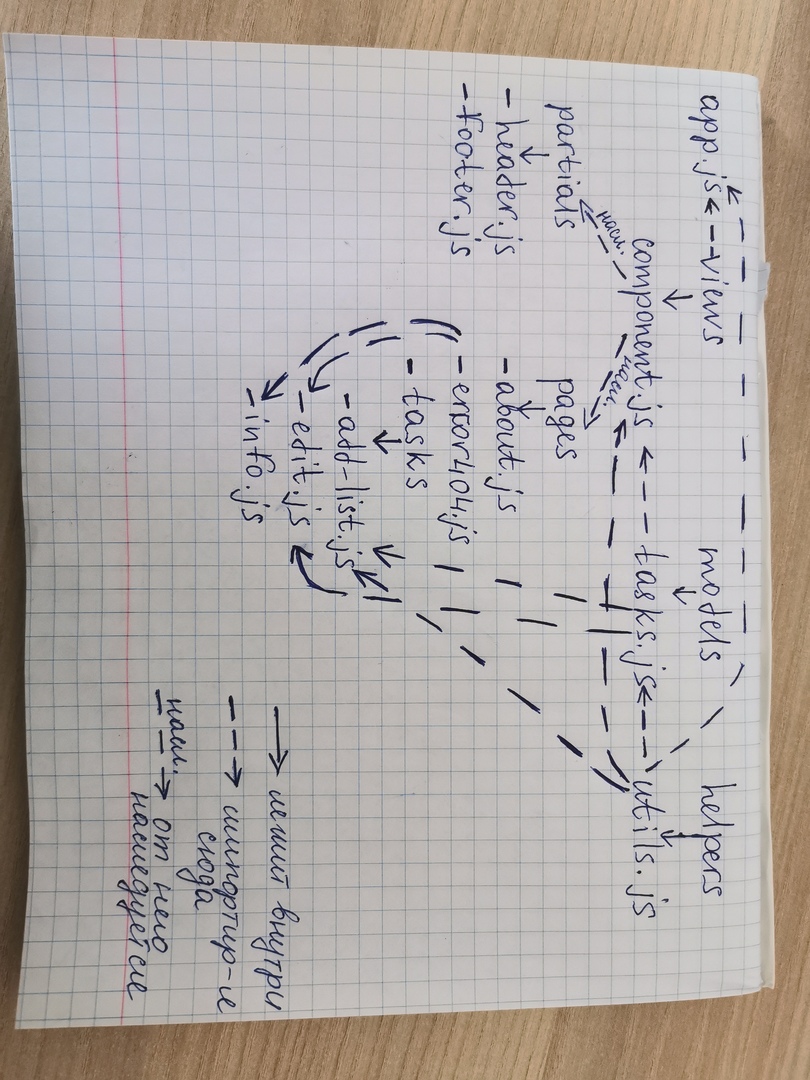 app.js views models helpers
component.js tasks.js utils.js
насл. насл.
partials pages
- header.js - about.js
- footer.js - error404.js
- tasks
- add-list.js
- edit.js
- info.js
лежит внутри
импортир-я
сюда
насл. от него
наследуется